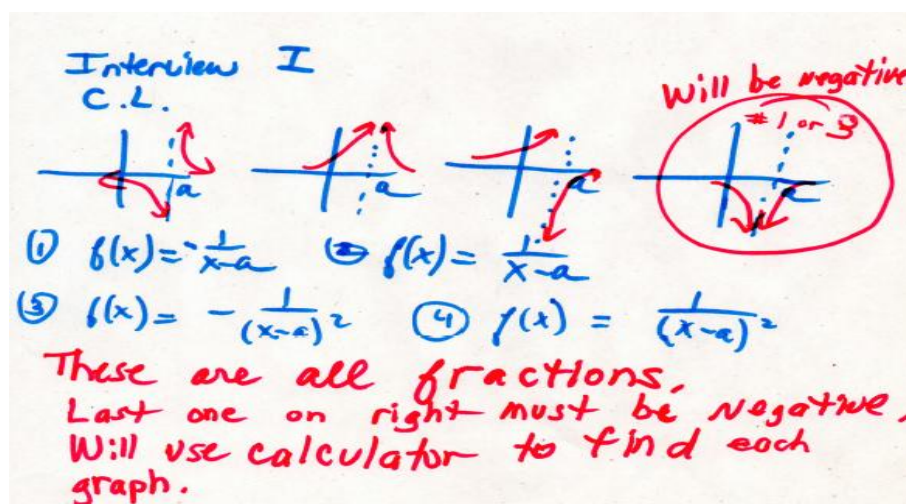 Interview I
C.L.
Will be negative
#1 or 3
a a a a
① f(x) = -1/(x-a) ② f(x) = 1/(x-a)
③ f(x) = - 1/(x-a)² ④ f(x) = 1/(x-a)²
These are all fractions.
Last one on right must be negative.
Will use calculator to find each
graph.